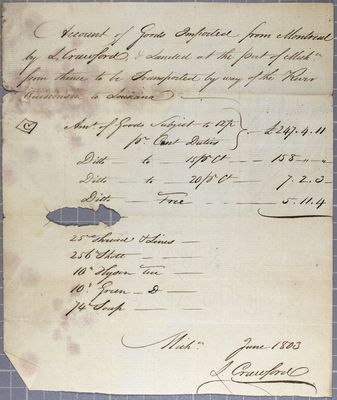 Account of Goods Imported from Montreal
by L. Crawford, & Landed at the port of Mich:ns
from thence to be Transported by way of the River
Ouisconsin to Louisiana
Amt. of Goods Subject to 12½
pr. Cent Duties £247.4.11
Ditto — to — 15 pCt — 158 " — "
Ditto — to — 20 pCt — 7.2.3
Ditto — Free — 5.11.4
25 lb Thread & Lines —
256 Shott —
10 lb Hyson Tea —
10 lb Green — D —
74 lb Soap —
Mich:ns June 1803
L Crawford